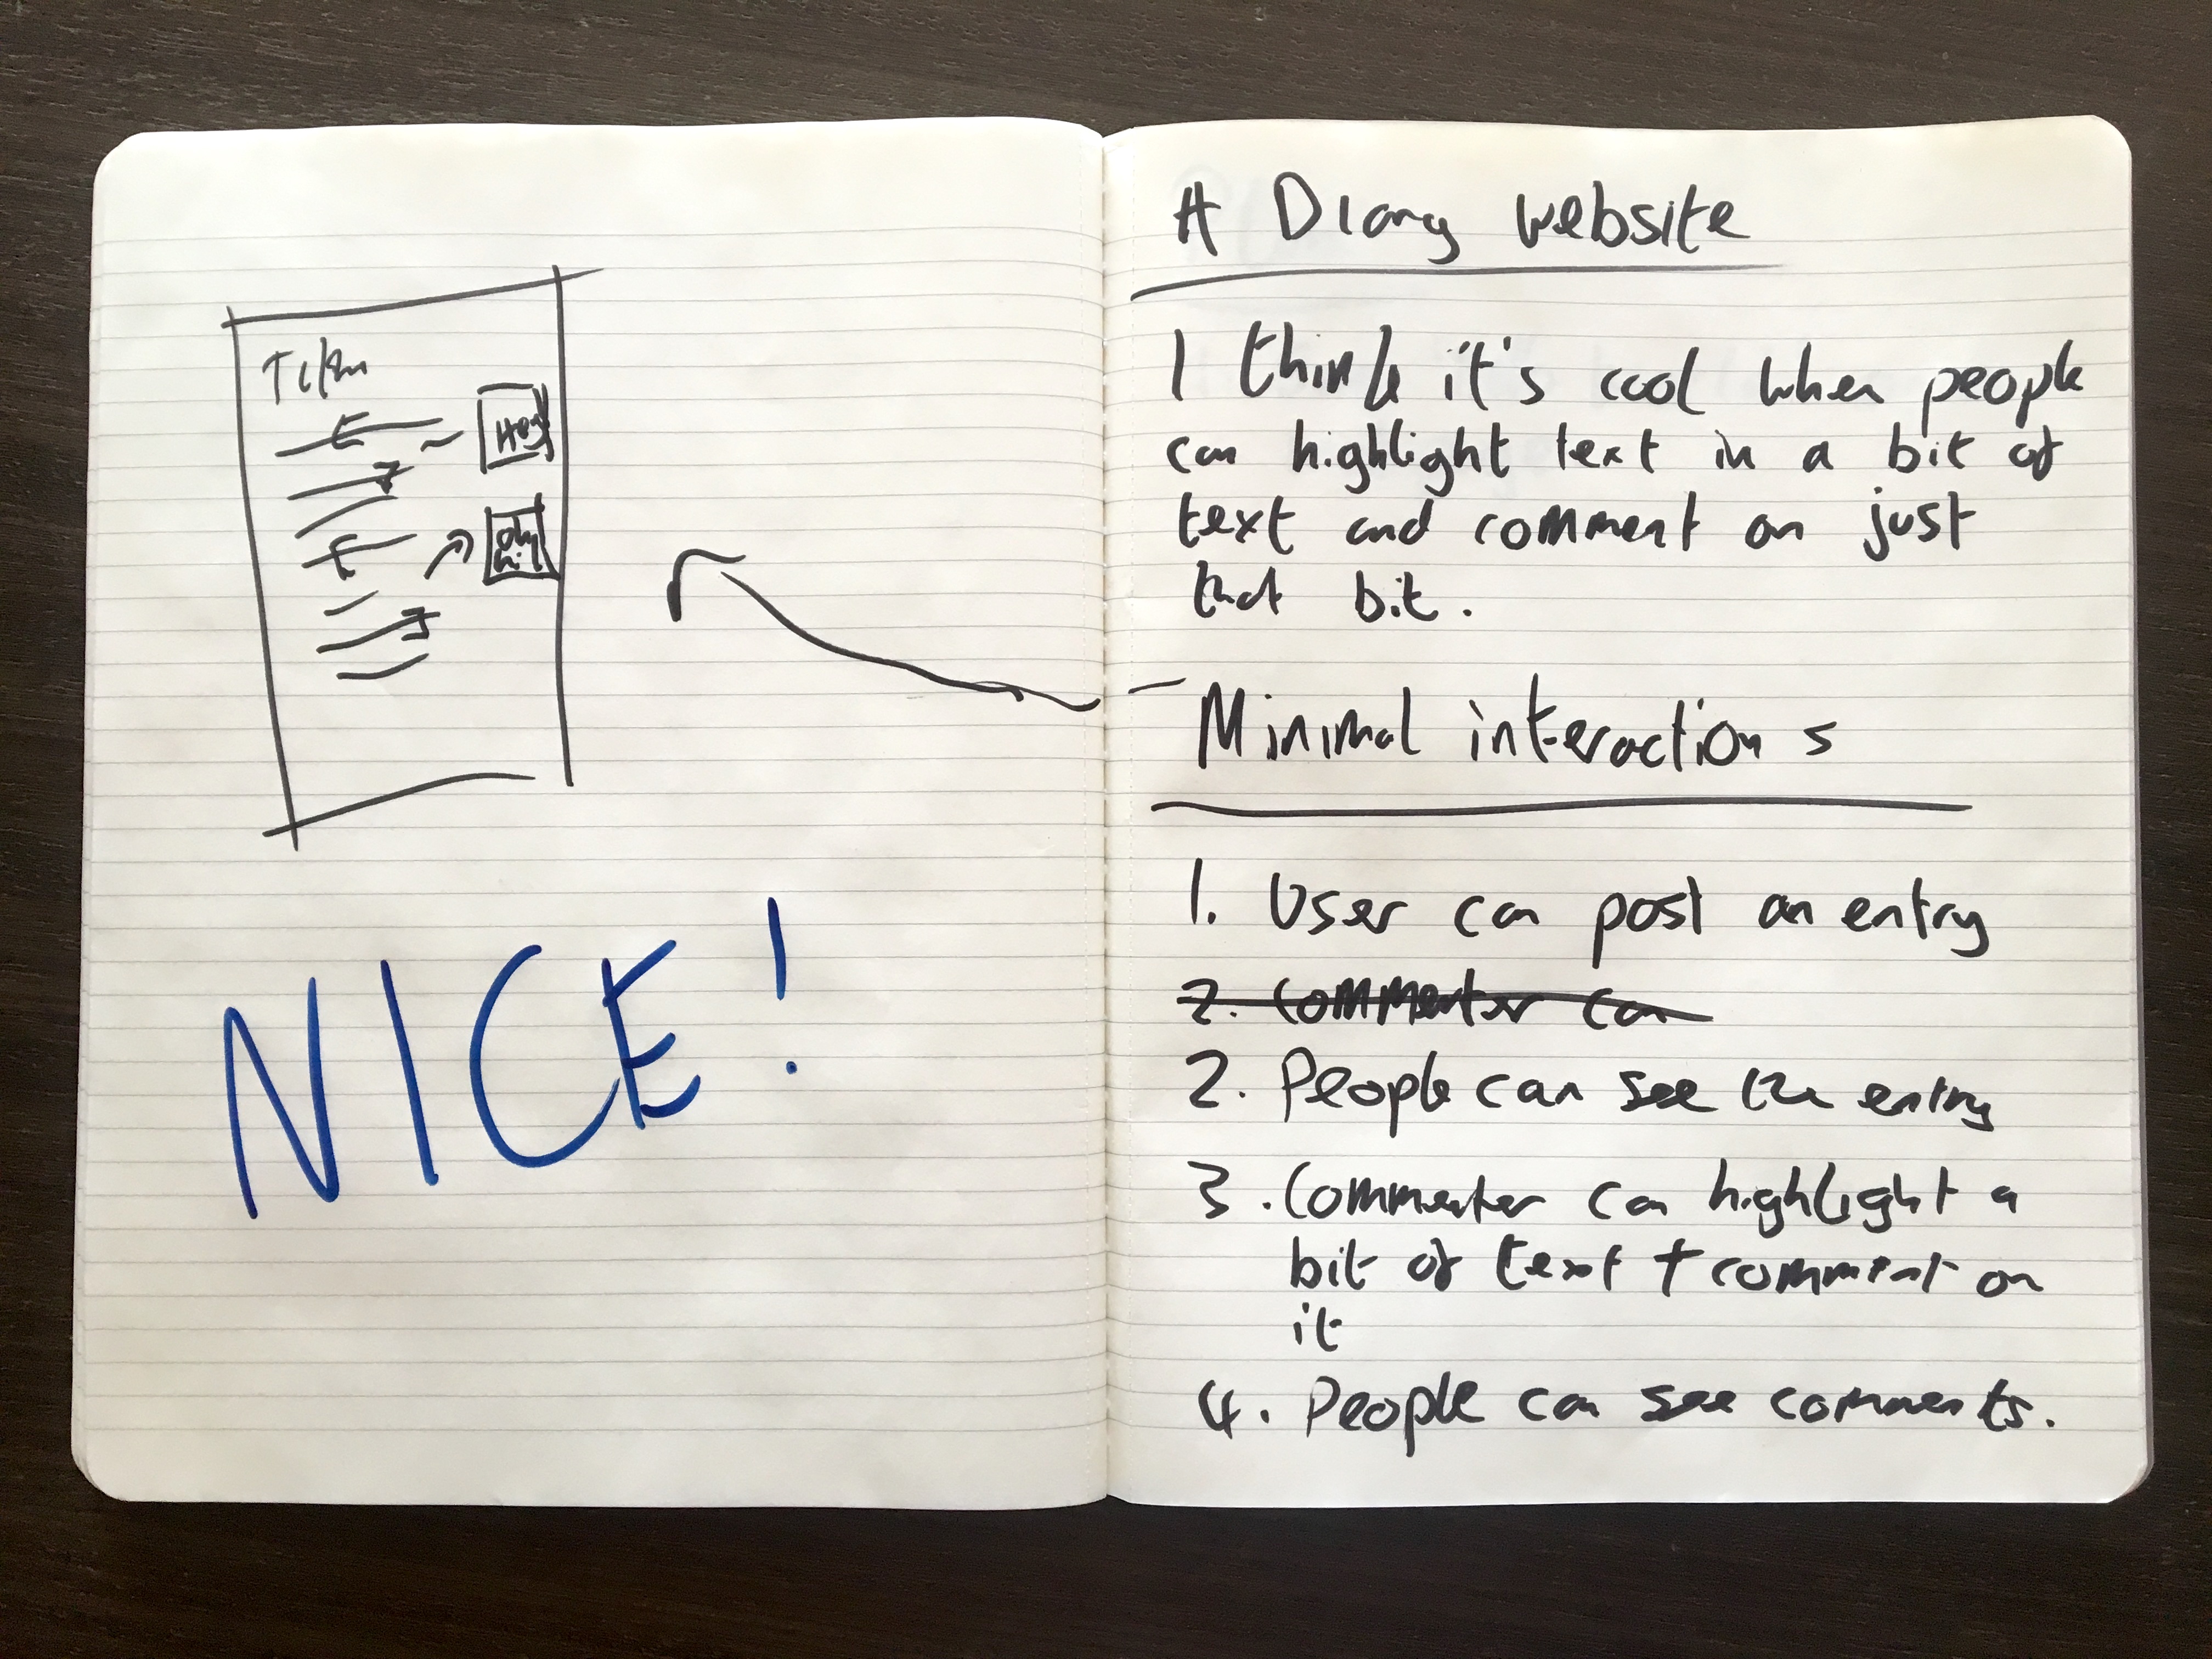 Title
Hey
oh
hi
NICE!
A Diary website
I think it's cool when people
can highlight text in a bit of
text and comment on just
that bit.
Minimal interactions
1. User can post an entry
2. Commenter can
2. People can see the entry
3. Commenter can highlight a
bit of text + comment on
it
4. People can see comments.